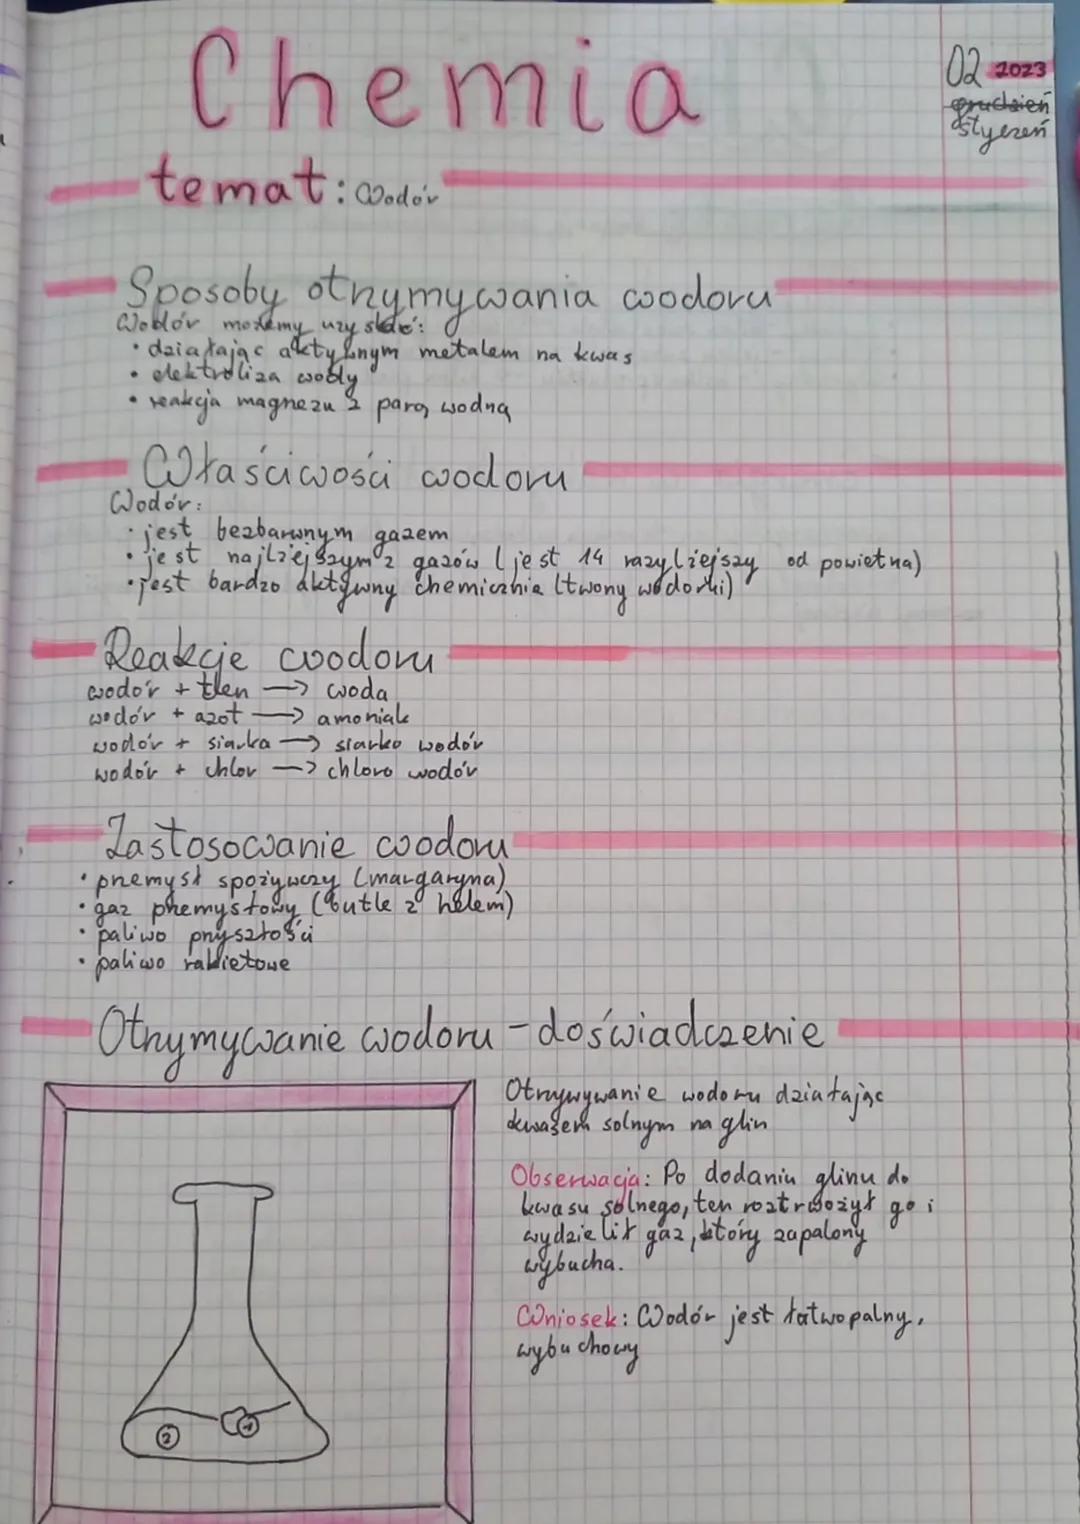 Chemia
02 2023
grudzień
styczeń
temat: Wodór
Sposoby otrzymywania wodoru
Wodór możemy uzyskać:
• działając aktywnym metalem na kwas
• elektroliza wody
• reakcja magnezu z parą wodną
Właściwości wodoru
Wodór:
• jest bezbarwnym gazem
• jest najlżejszym z gazów (jest 14 razy lżejszy od powietrza)
• jest bardzo aktywny chemicznie (tworzy wodorki)
Reakcje wodoru
wodór + tlen → woda
wodór + azot → amoniak
wodór + siarka → siarko wodór
wodór + chlor → chloro wodór
Zastosowanie wodoru
• przemysł spożywczy (margaryna)
• gaz przemysłowy (butle z helem)
• paliwo przyszłości
• paliwo rakietowe
Otrzymywanie wodoru - doświadczenie
Otrzywywanie wodoru działając
kwasem solnym na glin
Obserwacja: Po dodaniu glinu do
kwasu solnego, ten roztwożył go i
wydzielił gaz, który zapalony
wybucha.
Wniosek: Wodór jest łatwopalny,
wybuchowy
2 1